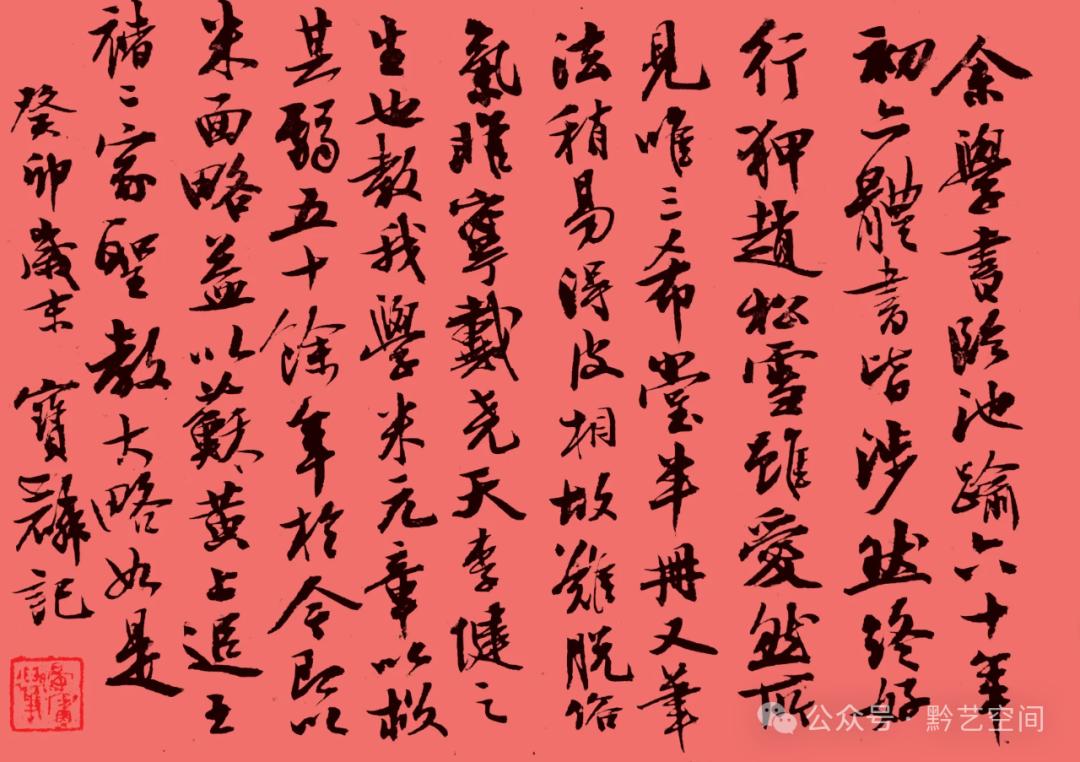 余學書臨池踰六十年
初六體書皆涉然終好
行狎趙松雪雖愛然所
見唯三希堂半冊又筆
法稍易得皮相故難脱俗
氣睢寧戴尧天李健之
生也教我學米元章以救
其弱五十餘年於今即以
米面略益以蘇黄上追王
褚二家聖教大略如是
癸卯歲末 寶麟記
公众号·黔艺空间